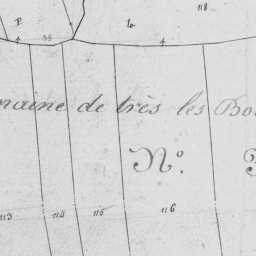 118
P
maine de très les Bo
N.º
113 114 115 116